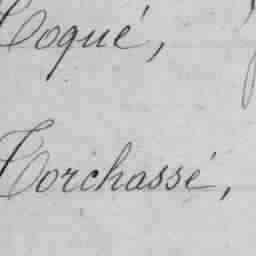 Toqué,
Torchassé,